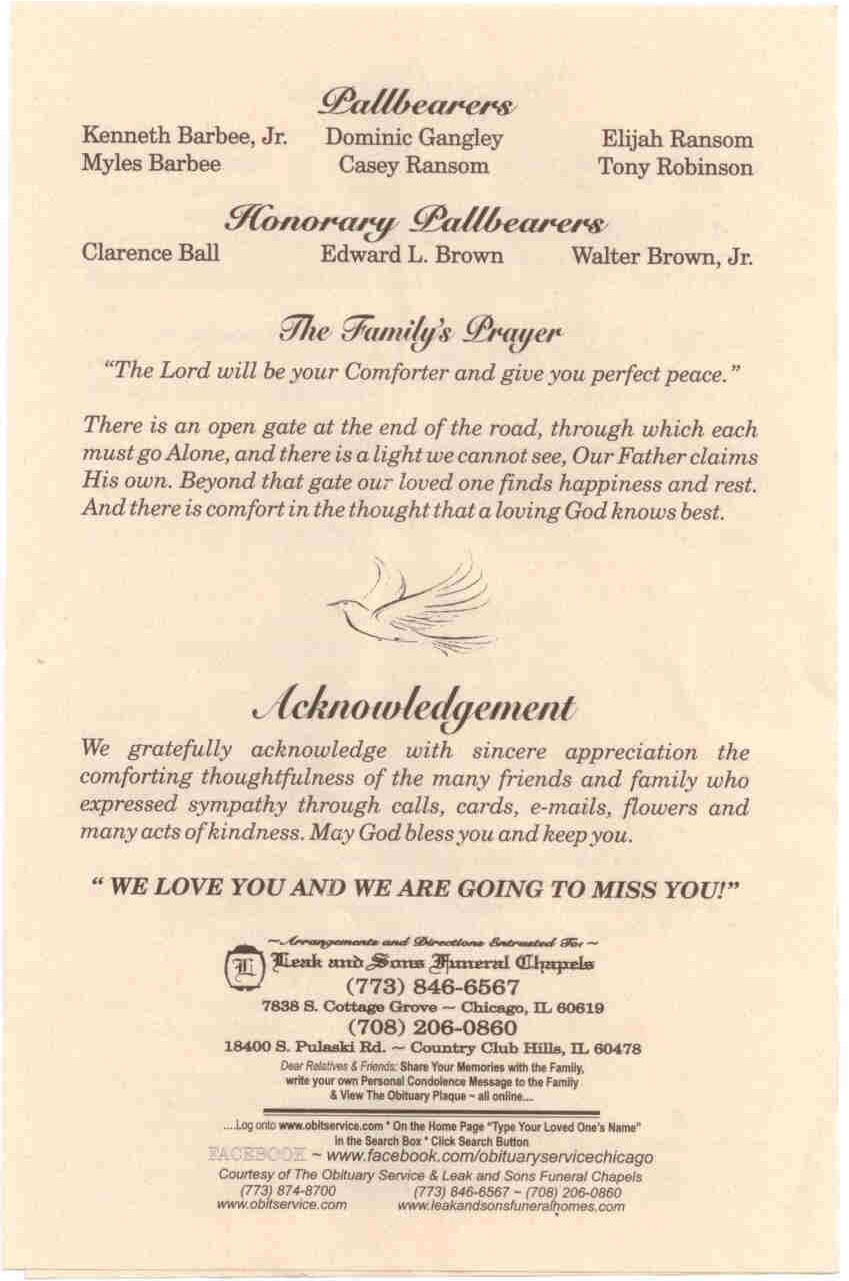 Pallbearers
Kenneth Barbee, Jr. Dominic Gangley Elijah Ransom
Myles Barbee Casey Ransom Tony Robinson
Honorary Pallbearers
Clarence Ball Edward L. Brown Walter Brown, Jr.
The Family's Prayer
"The Lord will be your Comforter and give you perfect peace."
There is an open gate at the end of the road, through which each
must go Alone, and there is a light we cannot see, Our Father claims
His own. Beyond that gate our loved one finds happiness and rest.
And there is comfort in the thought that a loving God knows best.
Acknowledgement
We gratefully acknowledge with sincere appreciation the
comforting thoughtfulness of the many friends and family who
expressed sympathy through calls, cards, e-mails, flowers and
many acts of kindness. May God bless you and keep you.
" WE LOVE YOU AND WE ARE GOING TO MISS YOU!"
~Arrangements and Directions Entrusted To: ~
L Leak and Sons Funeral Chapels
(773) 846-6567
7838 S. Cottage Grove ~ Chicago, IL 60619
(708) 206-0860
18400 S. Pulaski Rd. ~ Country Club Hills, IL 60478
Dear Relatives & Friends: Share Your Memories with the Family,
write your own Personal Condolence Message to the Family
& View The Obituary Plaque ~ all online....
....Log onto www.obitservice.com * On the Home Page "Type Your Loved One's Name"
in the Search Box * Click Search Button
FACEBOOK ~ www.facebook.com/obituaryservicechicago
Courtesy of The Obituary Service & Leak and Sons Funeral Chapels
(773) 874-8700 (773) 846-6567 ~ (708) 206-0860
www.obitservice.com www.leakandsonsfuneralhomes.com